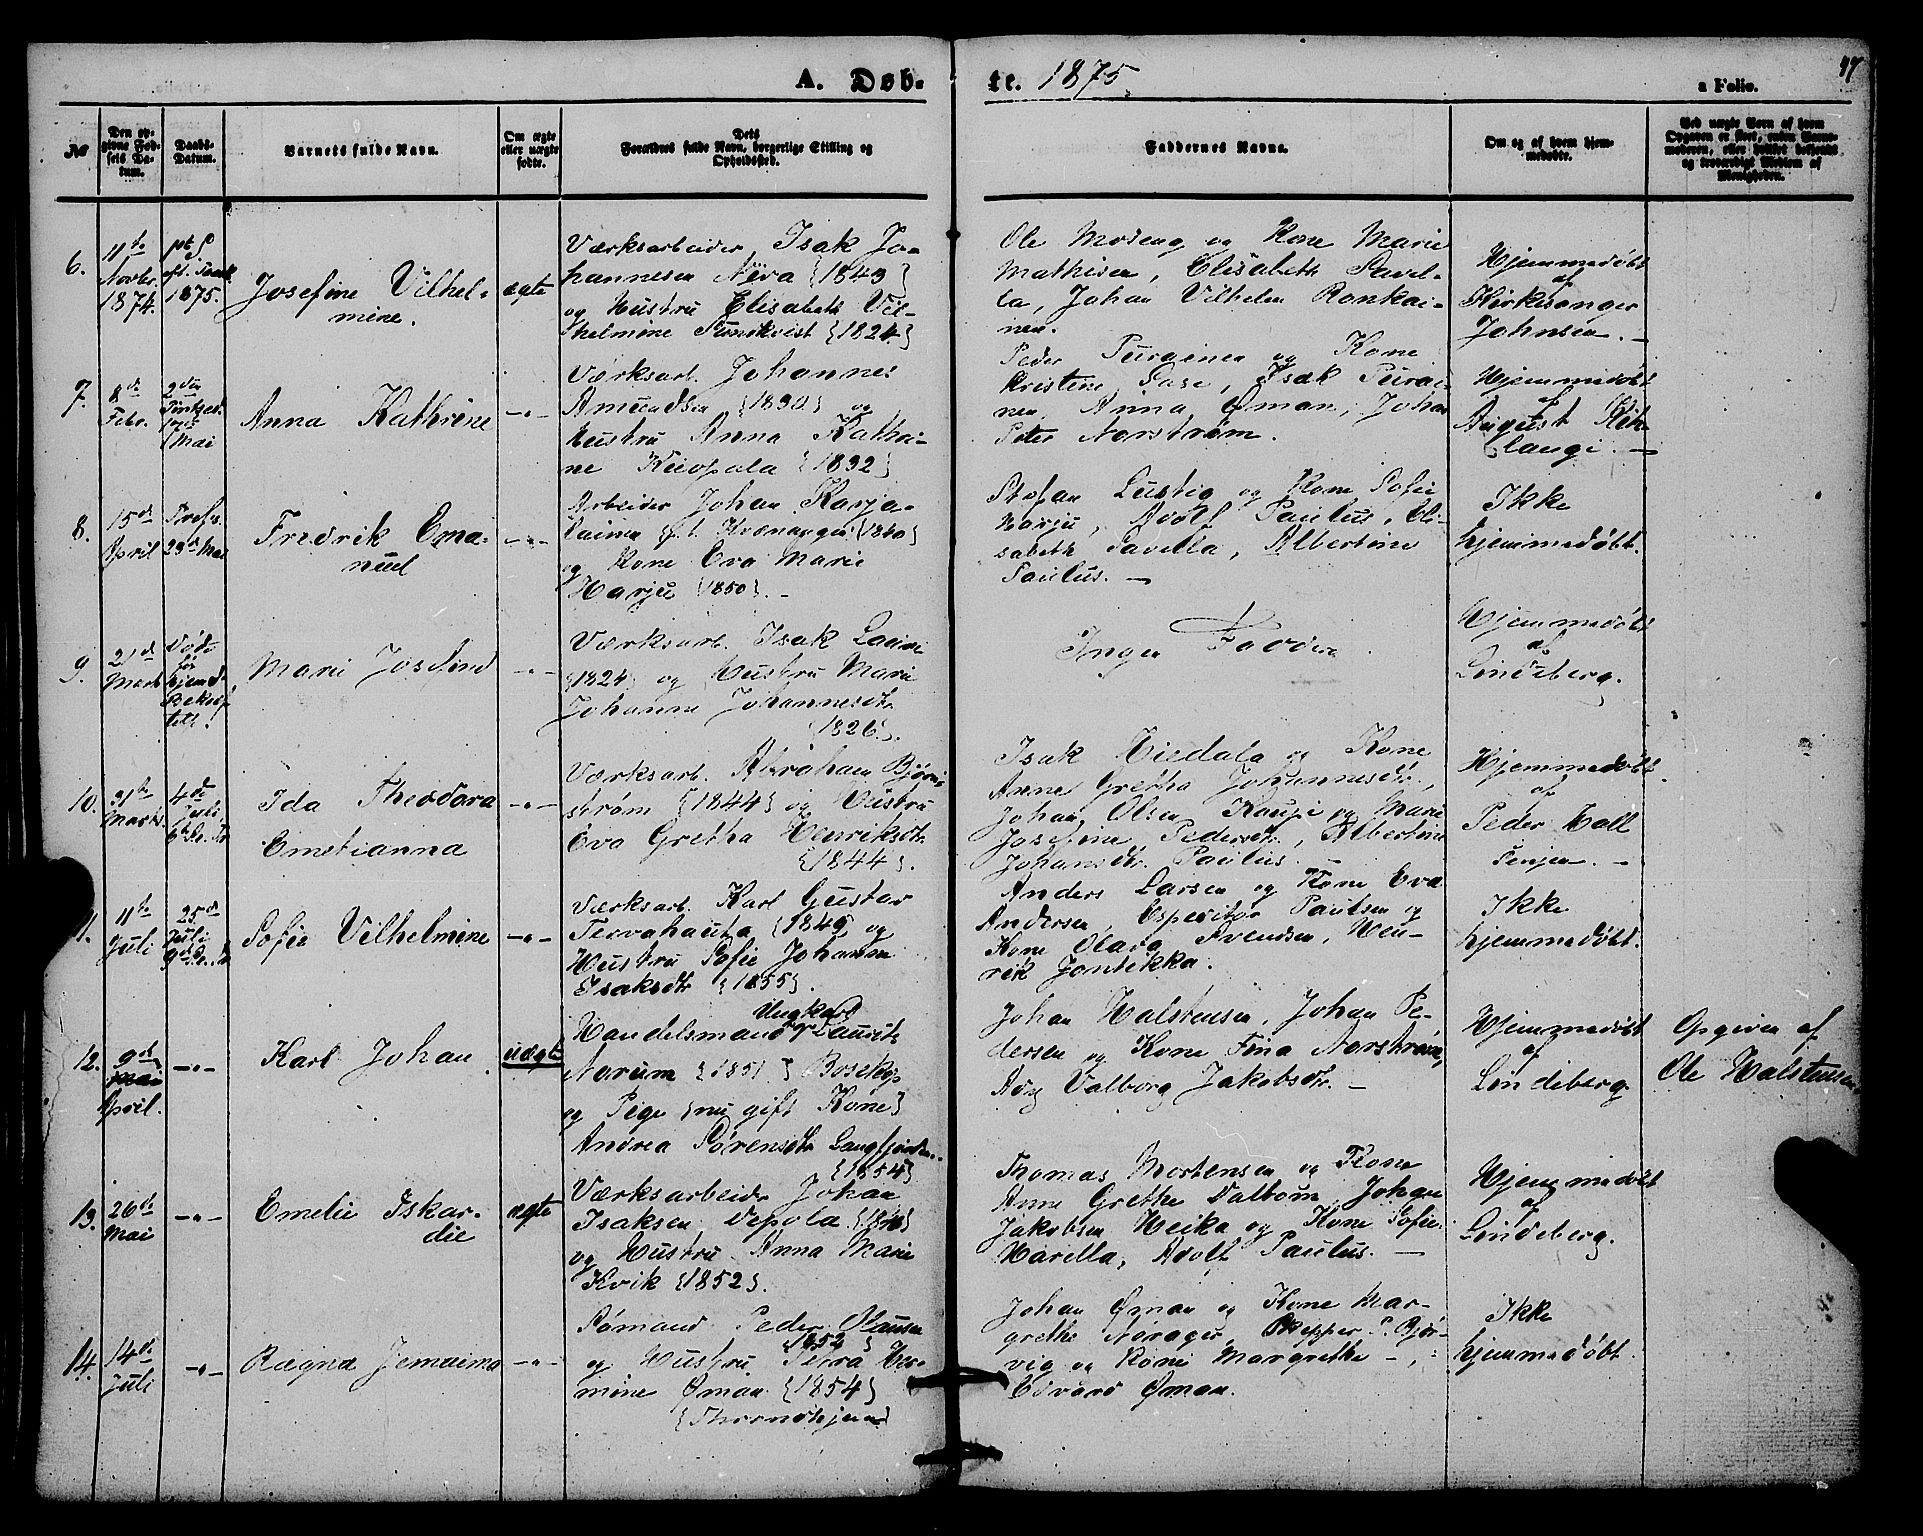 A. Døb- te. 1875. 47
a Folio.
№
Den opgivne Fødsels Datum.
Daabs-Datum.
Barnets fulde Navn.
Om ægte eller uægte fødte.
Dets Forældres fulde Navn, borgerlige Stilling og Opholdssted.
Faddernes Navne.
Om og af hvem hjemmedøbte.
Ved uægte Børn af hvem Opgaven er skeet, enten Barnemoderen, eller hvilket bekjendt og troværdigt Medlem af Menigheden.
6.
11te
Novbr.
1874.
1875.
Josefine Vilhel-
mine.
ægte
Værksarbeider Isak Jo-
hannesen Niva {1849}
og Hustru Elisabeth Vil-
helmine Sundkvist {1824}
Ole Moseng og Kone Marie
Mathisen, Elisabeth Pavel-
la, Johan Vilhelm Ronkai-
nen.
Hjemmedøbt
af
Kirkesanger
Johnsen. -
7.
8de
Febr.
2den
Mai
Anna Kathrine
-"-
Værksarb. Johannes
Amundsen {1830} og
Hustru Anna Kathri-
ne Kuopala {1832}
Peder Purainen og Kone
Kristine Sase, Isak Purai-
nen, Anna Øman, Johan
Peter Norstrøm.
Hjemmedøbt
af
August Kih-
langi. -
8.
15de
April
23de Mai
Fredrik Ema-
nuel
-"-
Arbeider Johan Karja-
lainen f. t. Kvænangen {1840}
og Kone Eva Marie
Harju {1850}. -
Stefan Lustig og Kone Sofie
Harju, Adolf Paulus, Eli-
sabeth Pavella, Albertine
Paulus. -
Ikke
hjemmedøbt.
9.
21de
Marts
Død
før
hjemd.
Marie Josefine
-"-
Værksarb. Isak Laini
{1824} og Hustru Marie
Johanne Johannesdtr.
{1826}.
Ingen Faddere
Hjemmedøbt
af
Lindeberg.
10.
31te
Marts.
4de
Juli
Ida Theodora
Emetianna
-"-
Værksarb. Abraham Bjørn-
strøm {1844} og Hustru
Eva Gretha Henriksdtr.
{1844}.
Isak Hiedala og Kone
Anne Gretha Johannesdtr,
Johan Olsen Kaupi og Marie
Josefine Pedersdtr, Albertine
Johansdtr. Paulus. -
Hjemmedøbt
af
Peder Hall
Senjen. -
11.
11te
Juli
25de
Juli
Sofie Vilhelmine
-"-
Værksarb. Karl Gustav
Tervahauta {1849} og
Hustru Sofie Johanne
Isaksdtr {1855}.
Anders Larsen og Kone Eva
Andersen, Expeditør Paulsen og
Kone Olava Svendsen, Hen-
rik Jontikka.
Ikke
hjemmedøbt.
12.
9de
April.
-"-
Karl Johan
uægte
Ungkarl
Handelsmand Laurits
Norum {1851} Bosekop
og Pige {nu gift Kone}
Andrea Sørensdtr Langfjorden.
{1854}
Johan Halstensen, Johan Pe-
dersen og Kone Fina Norstrøm,
Valborg Jakobsdtr. -
Hjemmedøbt
af
Lindeberg.
Opgiven af
Ole Halstensen
13.
26de
Mai
-"-
Emelie Iskar-
die
ægte
Værksarbeider Johan
Isaksen Vepola
og Hustru Anna Marie
Kvik {1852}.
Thomas Mortensen og Kone
Anne Grethe Dalbom, Johan
Jakobsen Heika og Kone Sofie
Marella, Adolf Paulus. -
Hjemmedøbt
af
Lindeberg.
14.
14de
Juli
-"-
Ragna Jemaima
-"-
Sømand Peder Olausen
{1852}
og Hustru Petra Her-
mine Øman {1854}
{Throndhjem}
Johan Øman og Kone Mar-
grethe Norager, Skipper P. Bjør-
vig og Kone Margrethe -"-
Edvard Øman.
Ikke
hjemmedøbt.